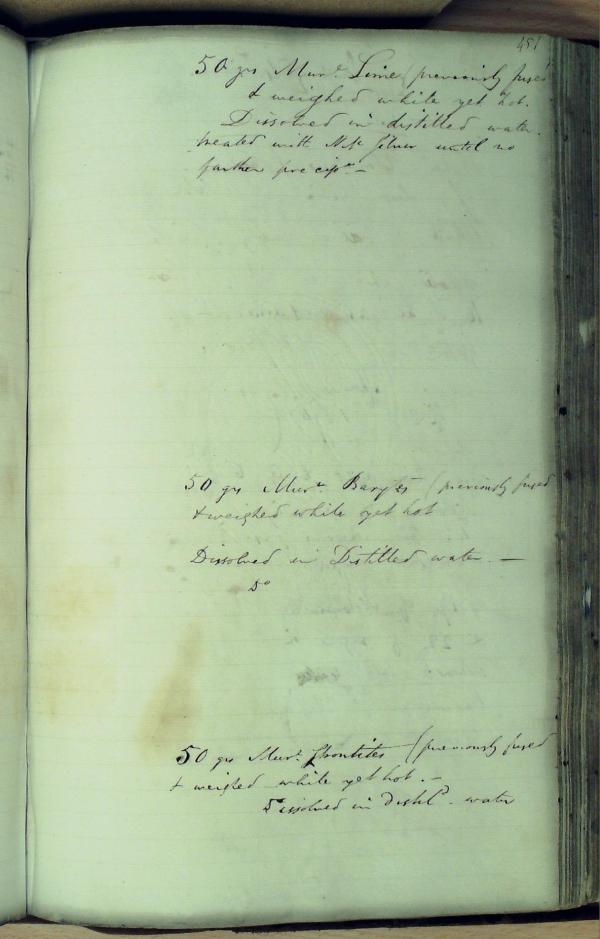 451
50 grs Murte Lime (previously fused
& weighed white yet hot.
Dissolved in distilled water.
treated with Nte Silver until no
further precipn –
50 grs Murte Barytes (previously fused
& weighed white yet hot
Dissolved in Distilled water. —
Do
50 grs Murte Strontites (previously fused
& weighed white yet hot. –
Dissolved in Distld. water